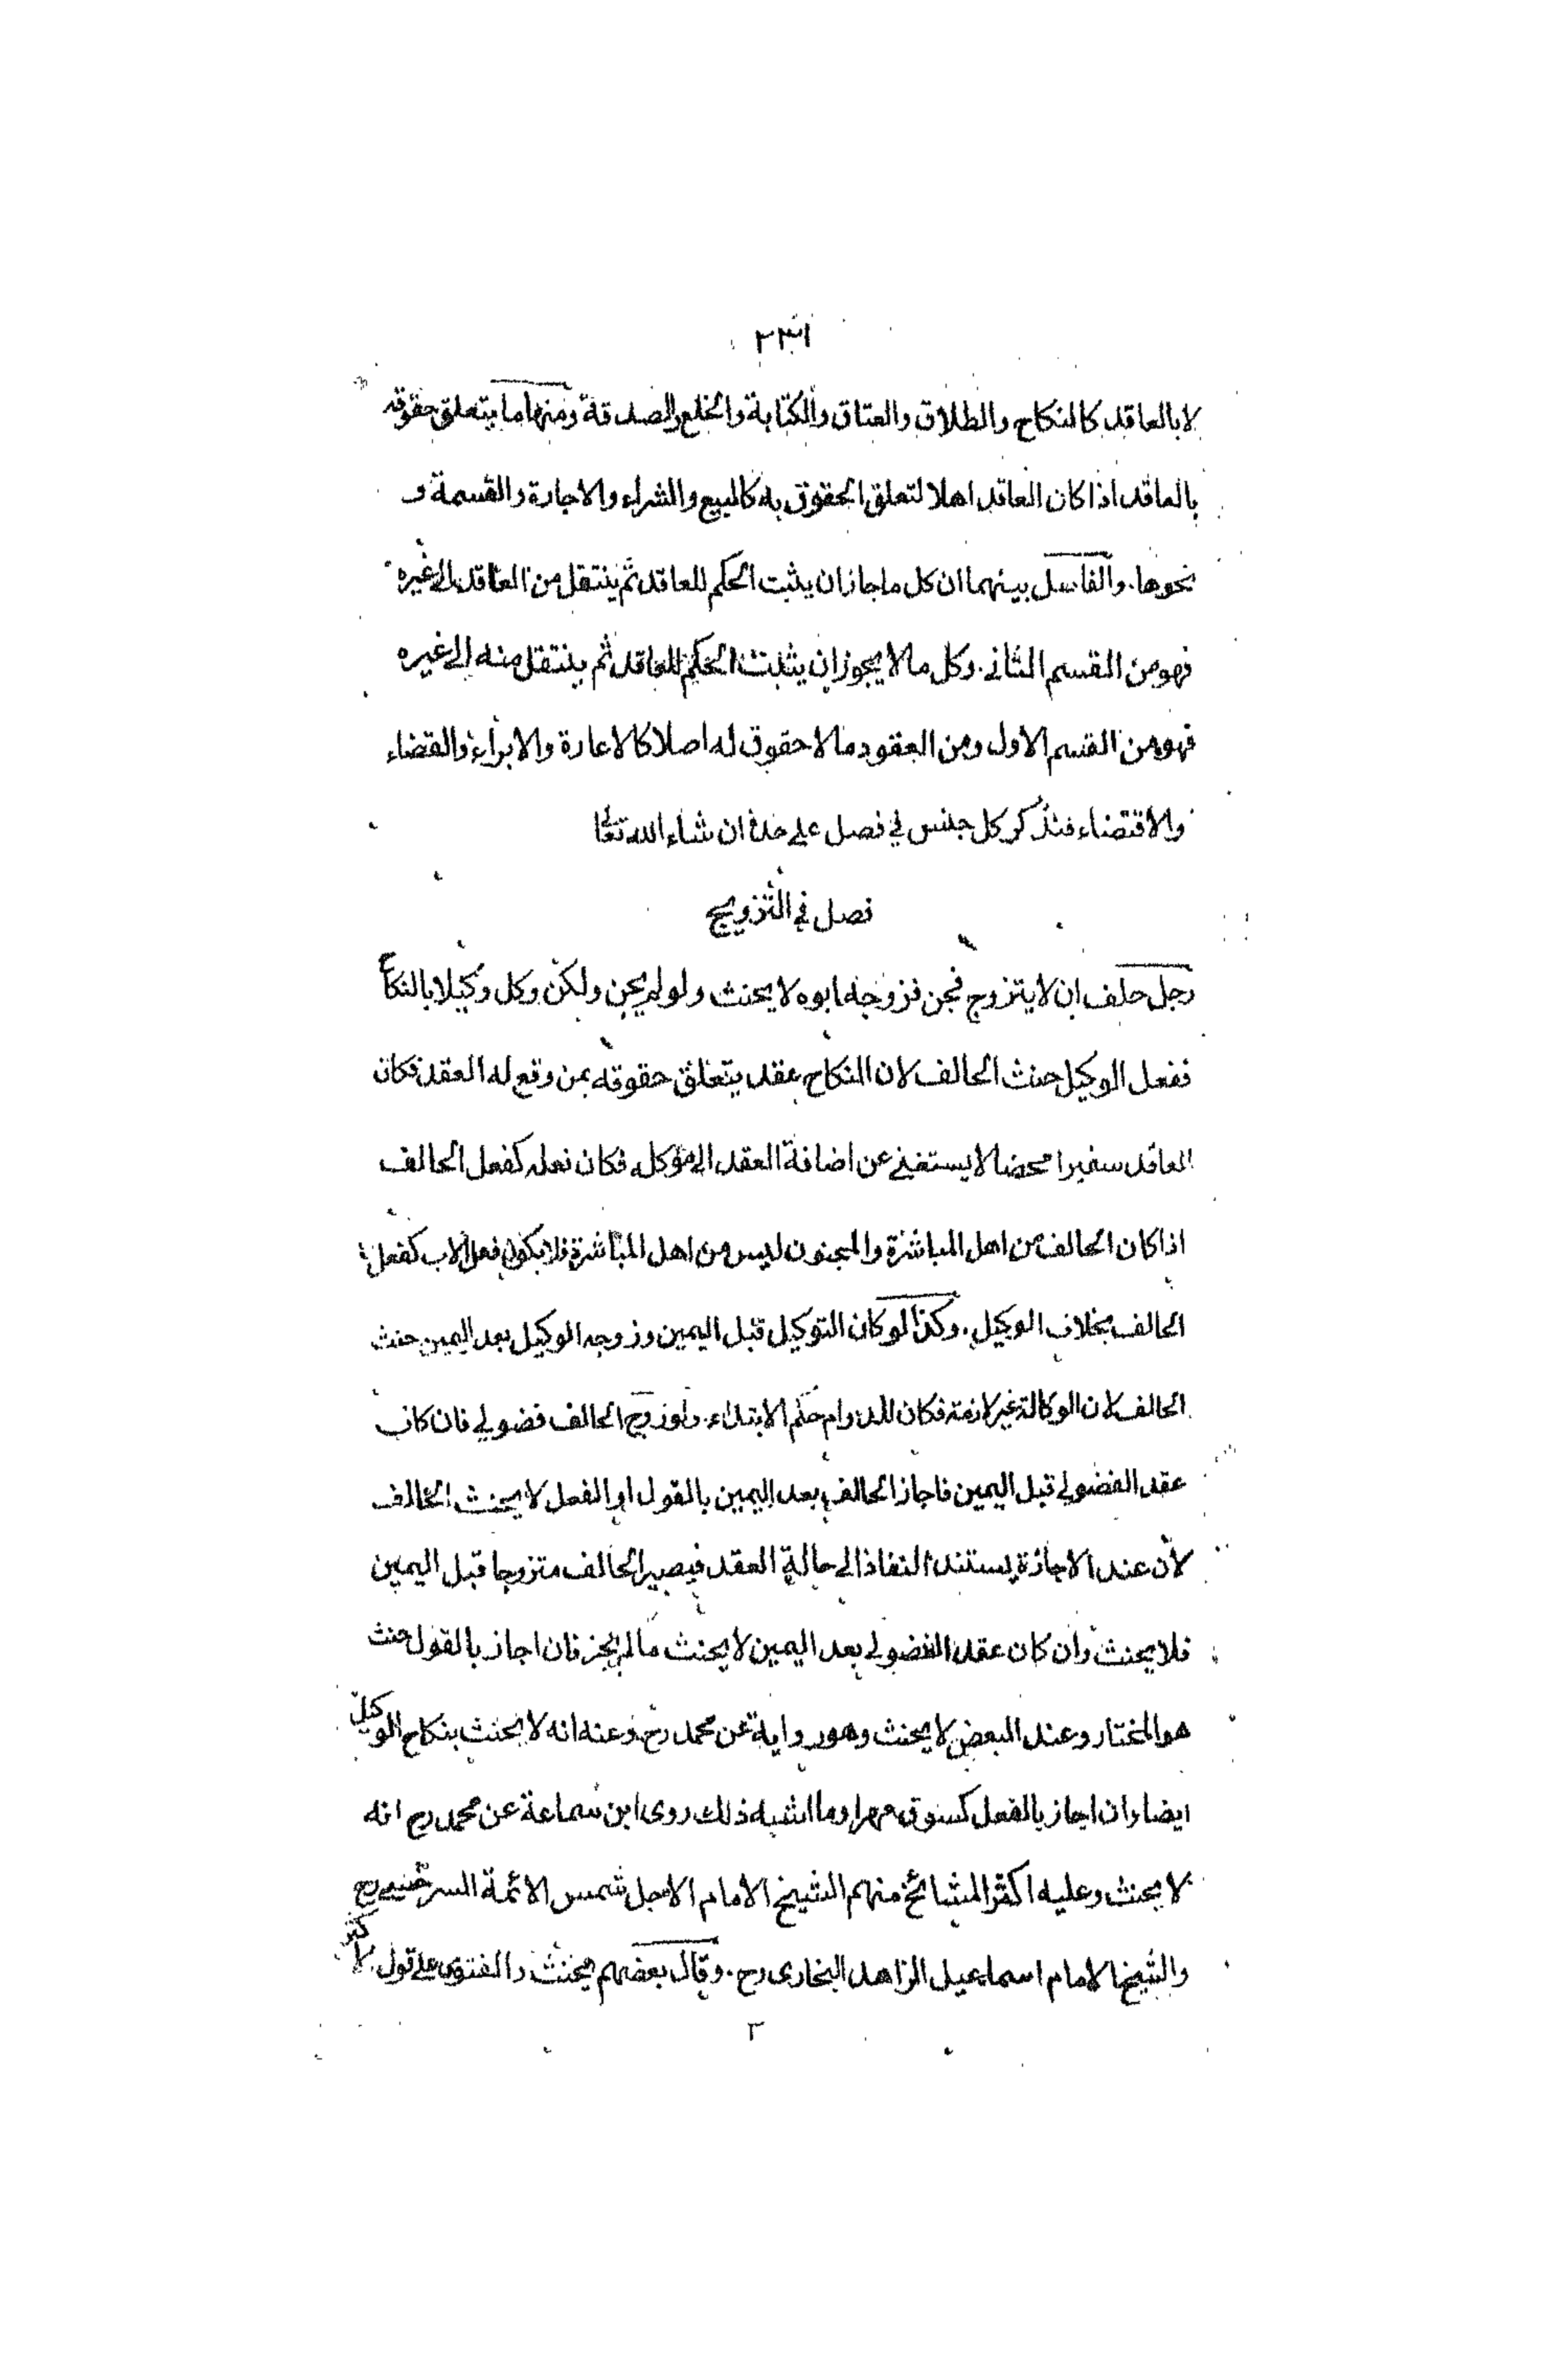 ٢٣١
لا بالعاقد كالنكاح والطلاق والعتاق والكتابة والخلع والصدقة ومنها ما يتعلق حقوقه
بالعاقد اذا كان العاقد اهلا لتعلق الحقوق به كالبيع والشراء والاجارة والقسمة و
نحوها. والفاصل بينهما ان كل ما جاز ان يثبت الحكم للعاقد ثم ينتقل من العاقد الى غيره
فهو من القسم الثاني. وكل ما لا يجوز ان يثبت الحكم للعاقد ثم ينتقل منه الى غيره
فهو من القسم الاول ومن العقود ما لا حقوق له اصلا كالاعارة والابراء والقضاء
والاقتضاء فنذكر كل جنس في فصل على حدة ان شاء الله تعالى
فصل في التزويج
رجل حلف ان لا يتزوج فجن فزوجه ابوه لا يحنث ولو لم يجن ولكن وكل وكيلا بالنكاح
ففعل الوكيل حنث الحالف لان النكاح عقد يتعلق حقوقه بمن وقع له العقد فكان
العاقد سفيرا محضا لا يستغني عن اضافة العقد الى موكله فكان فعله كفعل الحالف
اذا كان الحالف من اهل المباشرة والمجنون ليس من اهل المباشرة فلا يكون فعل الاب كفعل
الحالف بخلاف الوكيل. وكذا لو كان التوكيل قبل اليمين وزوجه الوكيل بعد اليمين حنث
الحالف لان الوكالة غير لازمة فكان للدوام حكم الابتداء. ولو زوج الحالف فضولي فان كان
عقد الفضولي قبل اليمين فاجاز الحالف بعد اليمين بالقول او الفعل لا يحنث الحالف
لأن عند الاجازة يستند النفاذ الى حالة العقد فيصير الحالف متزوجا قبل اليمين
فلا يحنث وان كان عقد الفضولي بعد اليمين لا يحنث ما لم يجز فان اجاز بالقول حنث
هو المختار وعند البعض لا يحنث وهو رواية عن محمد رح وعنه انه لا يحنث بنكاح الوكيل
ايضا وان اجاز بالفعل كسوق مهر او ما اشبه ذلك روى ابن سماعة عن محمد رح انه
لا يحنث وعليه اكثر المشائخ منهم الشيخ الامام الاجل شمس الائمة السرخسي رح
والشيخ الامام اسماعيل الزاهد البخارى رح. وقال بعضهم يحنث والفتوى على قول الاكثر